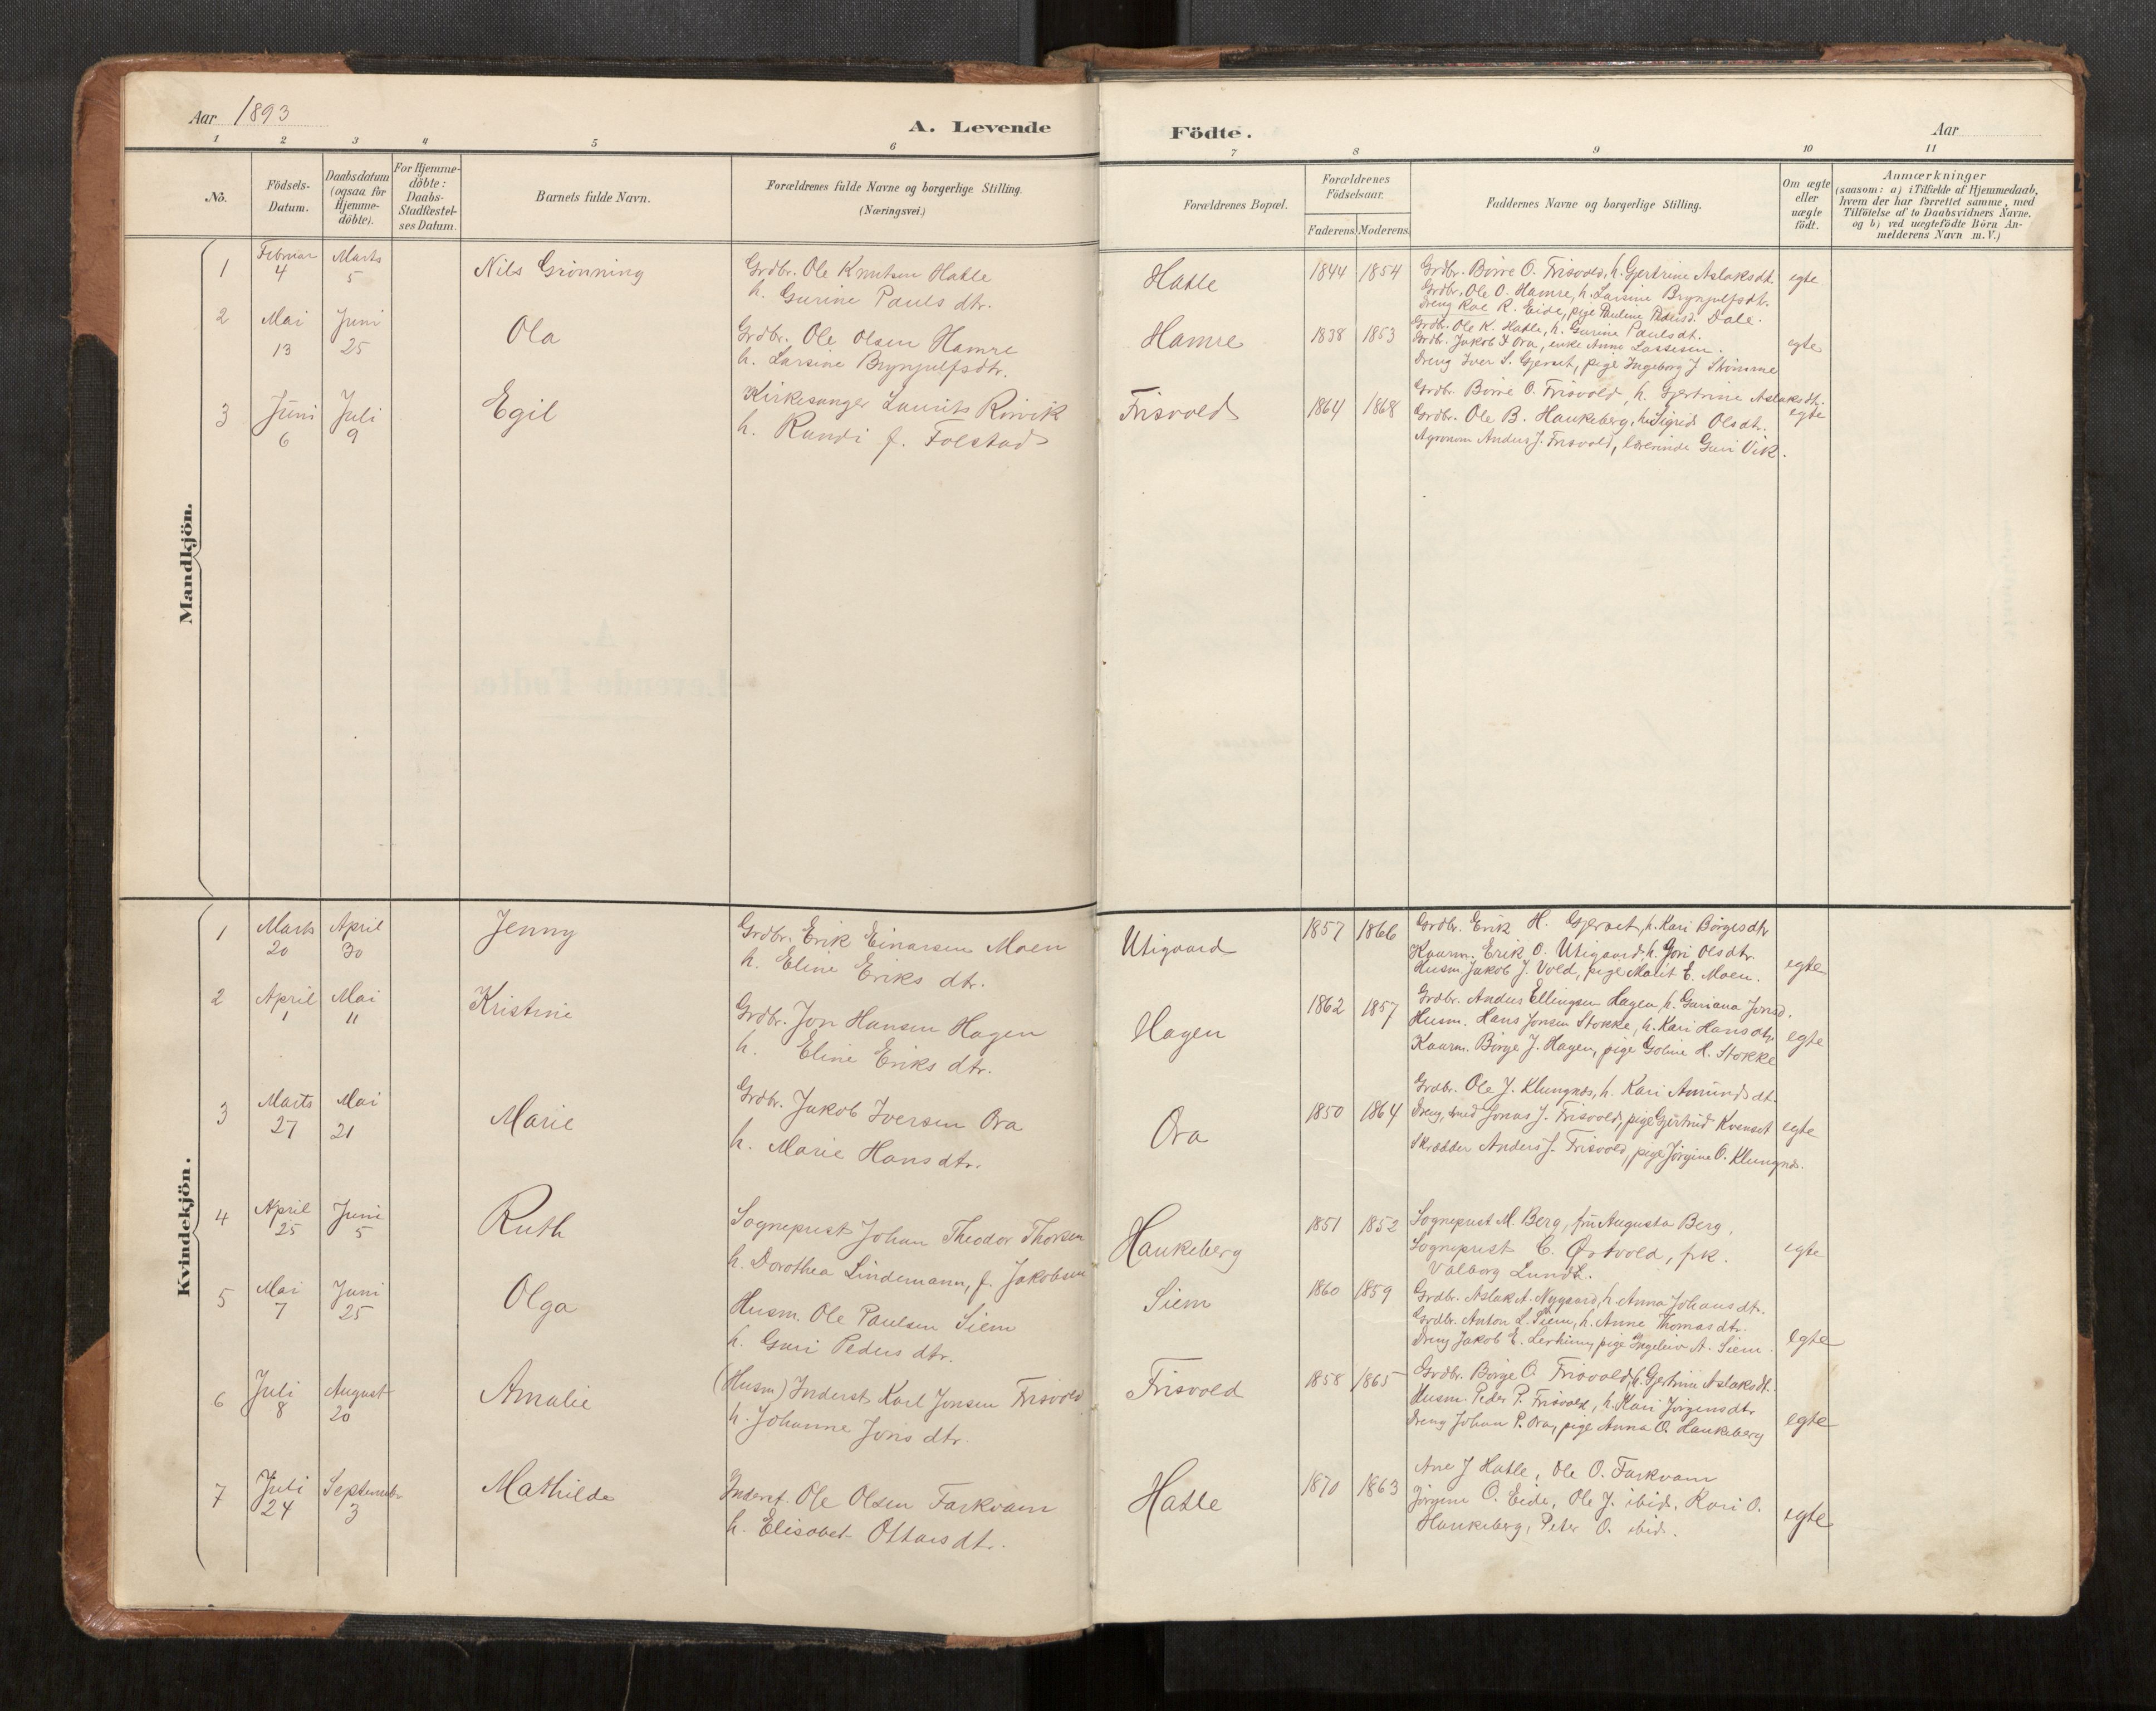 Aar 1893
A. Levende
Födte.
Aar
1 2 3 4 5 6 7 8 9 10 11
No.
Födsels-
Datum.
Daabsdatum
(ogsaa for
Hjemme-
döbte).
For Hjemme-
döbte:
Daabs-
Stadfæstel-
ses Datum.
Barnets fulde Navn.
Forældrenes fulde Navne og borgerlige Stilling.
(Næringsvei.)
Forældrenes Bopæl.
Forældrenes
Födselsaar.
Faderens. Moderens.
Faddernes Navne og borgerlige Stilling.
Om ægte
eller
uægte
födt.
Anmærkninger
(saasom: a) i Tilfælde af Hjemmedaab,
hvem der har forrettet samme, med
Tilföielse af to Daabsvidners Navne.
og b) ved uægtefödte Börn An-
melderens Navn m.V.)
Mandkjön.
1 Februar 4 Marts 5 Nils Grönning
Grdbr. Ole Knutsen Hatle
h. Gurine Pauls dtr.
Hatle 1844 1854
Grdbr. Börre O. Frisvold, h. Gjertrine Aslaksdt.
Grdbr. Ole O. Hamre, h. Larsine Brynjulfsdt.
Dreng Roe R. Eide, pige Pauline Pedersd. Dale.
egte
2 Mai 13 Juni 25 Ola
Grdbr. Ole Olsen Hamre
h. Larsine Brynjulfsdtr.
Hamre 1838 1853
Grdbr. Ole K. Hatle, h. Gurine Paulsdt.
Grdb. Jakob I Ora, enke Anne Lassesen.
Dreng Iver S. Gjerset, pige Ingeborg J Strömme
egte
3 Juni 6 Juli 9 Egil
Kirkesanger Laurits Rövik
h. Randi f. Folstad
Frisvold 1864 1868
Grdbr. Börre O. Frisvold, h. Gjertrine Aslaksdt.
Grdbr. Ole B. Haukeberg, h. Sigrid Olsdt.
Agronom Anders J. Frisvold, lærerinde Guri Vik.
egte
Kvindekjön.
1 Marts 20 April 30 Jenny
Grdbr. Erik Einarsen Moen
h. Eline Eriks dtr.
Utigaard 1857 1866
Grdbr. Erik H. Gjerset, h. Kari Börgesdtr
Kaarm. Erik O. Utigaard h. Gjøri Olsdtr.
Husm Jakob J. Vold, pige Marit E. Moen.
egte
2 April 1 Mai 11 Kristine
Grdbr. Jon Hansen Hagen
h. Eline Eriks dtr.
Hagen 1862 1857
Grdbr. Anders Ellingsen Hagen, h. Guriana Jonsd.
Husm. Hans Jonsen Stokke, h. Kari Hansdtr.
Kaarm. Börge J. Hagen, pige Goline H. Stokke
egte
3 Marts 27 Mai 21 Marie
Grdbr. Jakob Iversen Ora
h. Marie Hans dtr.
Ora 1850 1864
Grdbr. Ole J. Klungnes, h. Kari Amunds dt.
Dreng, smed Jonas J. Frisvold, pige Gjertrud Kvenset
Skrædder Anders J. Frisvold, pige Jörgine O. Klungnes.
egte
4 April 25 Juni 5 Ruth
Sogneprest Johan Theodor Thorsen
h. Dorothea Lindemann, f. Jakobsen
Haukeberg 1851 1852
Sogneprest M. Berg, fru Augusta Berg,
Sogneprest C. Østvold, frk.
Valborg Lundh.
egte
5 Mai 7 Juni 25 Olga
Husm. Ole Paulsen Siem
h. Guri Peders dtr.
Siem 1860 1859
Grdbr. Aslak A. Nygaard, h. Anna Johans dtr.
Grdbr. Anton L. Siem, h. Anne Thomas dtr.
Dreng Jakob E. Lerheim, pige Ingeleiv A. Siem.
egte
6 Juli 8 August 20 Amalie
(Husm) Inderst Karl Jonsen Frisvold
h. Johanne Jons dtr.
Frisvold 1858 1865
Grdbr. Börge O. Frisvold, h. Gjertrine Aslaksdt.
Husm. Peder P. Frisvold, h. Kari Jörgensdtr
Dreng Johan P. Ora, pige Anna O. Haukeberg
egte
7 Juli 24 September 3 Mathilde
Inderst. Ole Olsen Farkvam
h. Elisabet Ottars dt.
Hatle 1870 1863
Ane J Hatle, Ole O. Farkvam
Jörgine O. Eide, Ole J. ibid, Kari O.
Haukeberg, Peter O. ibid.
egte